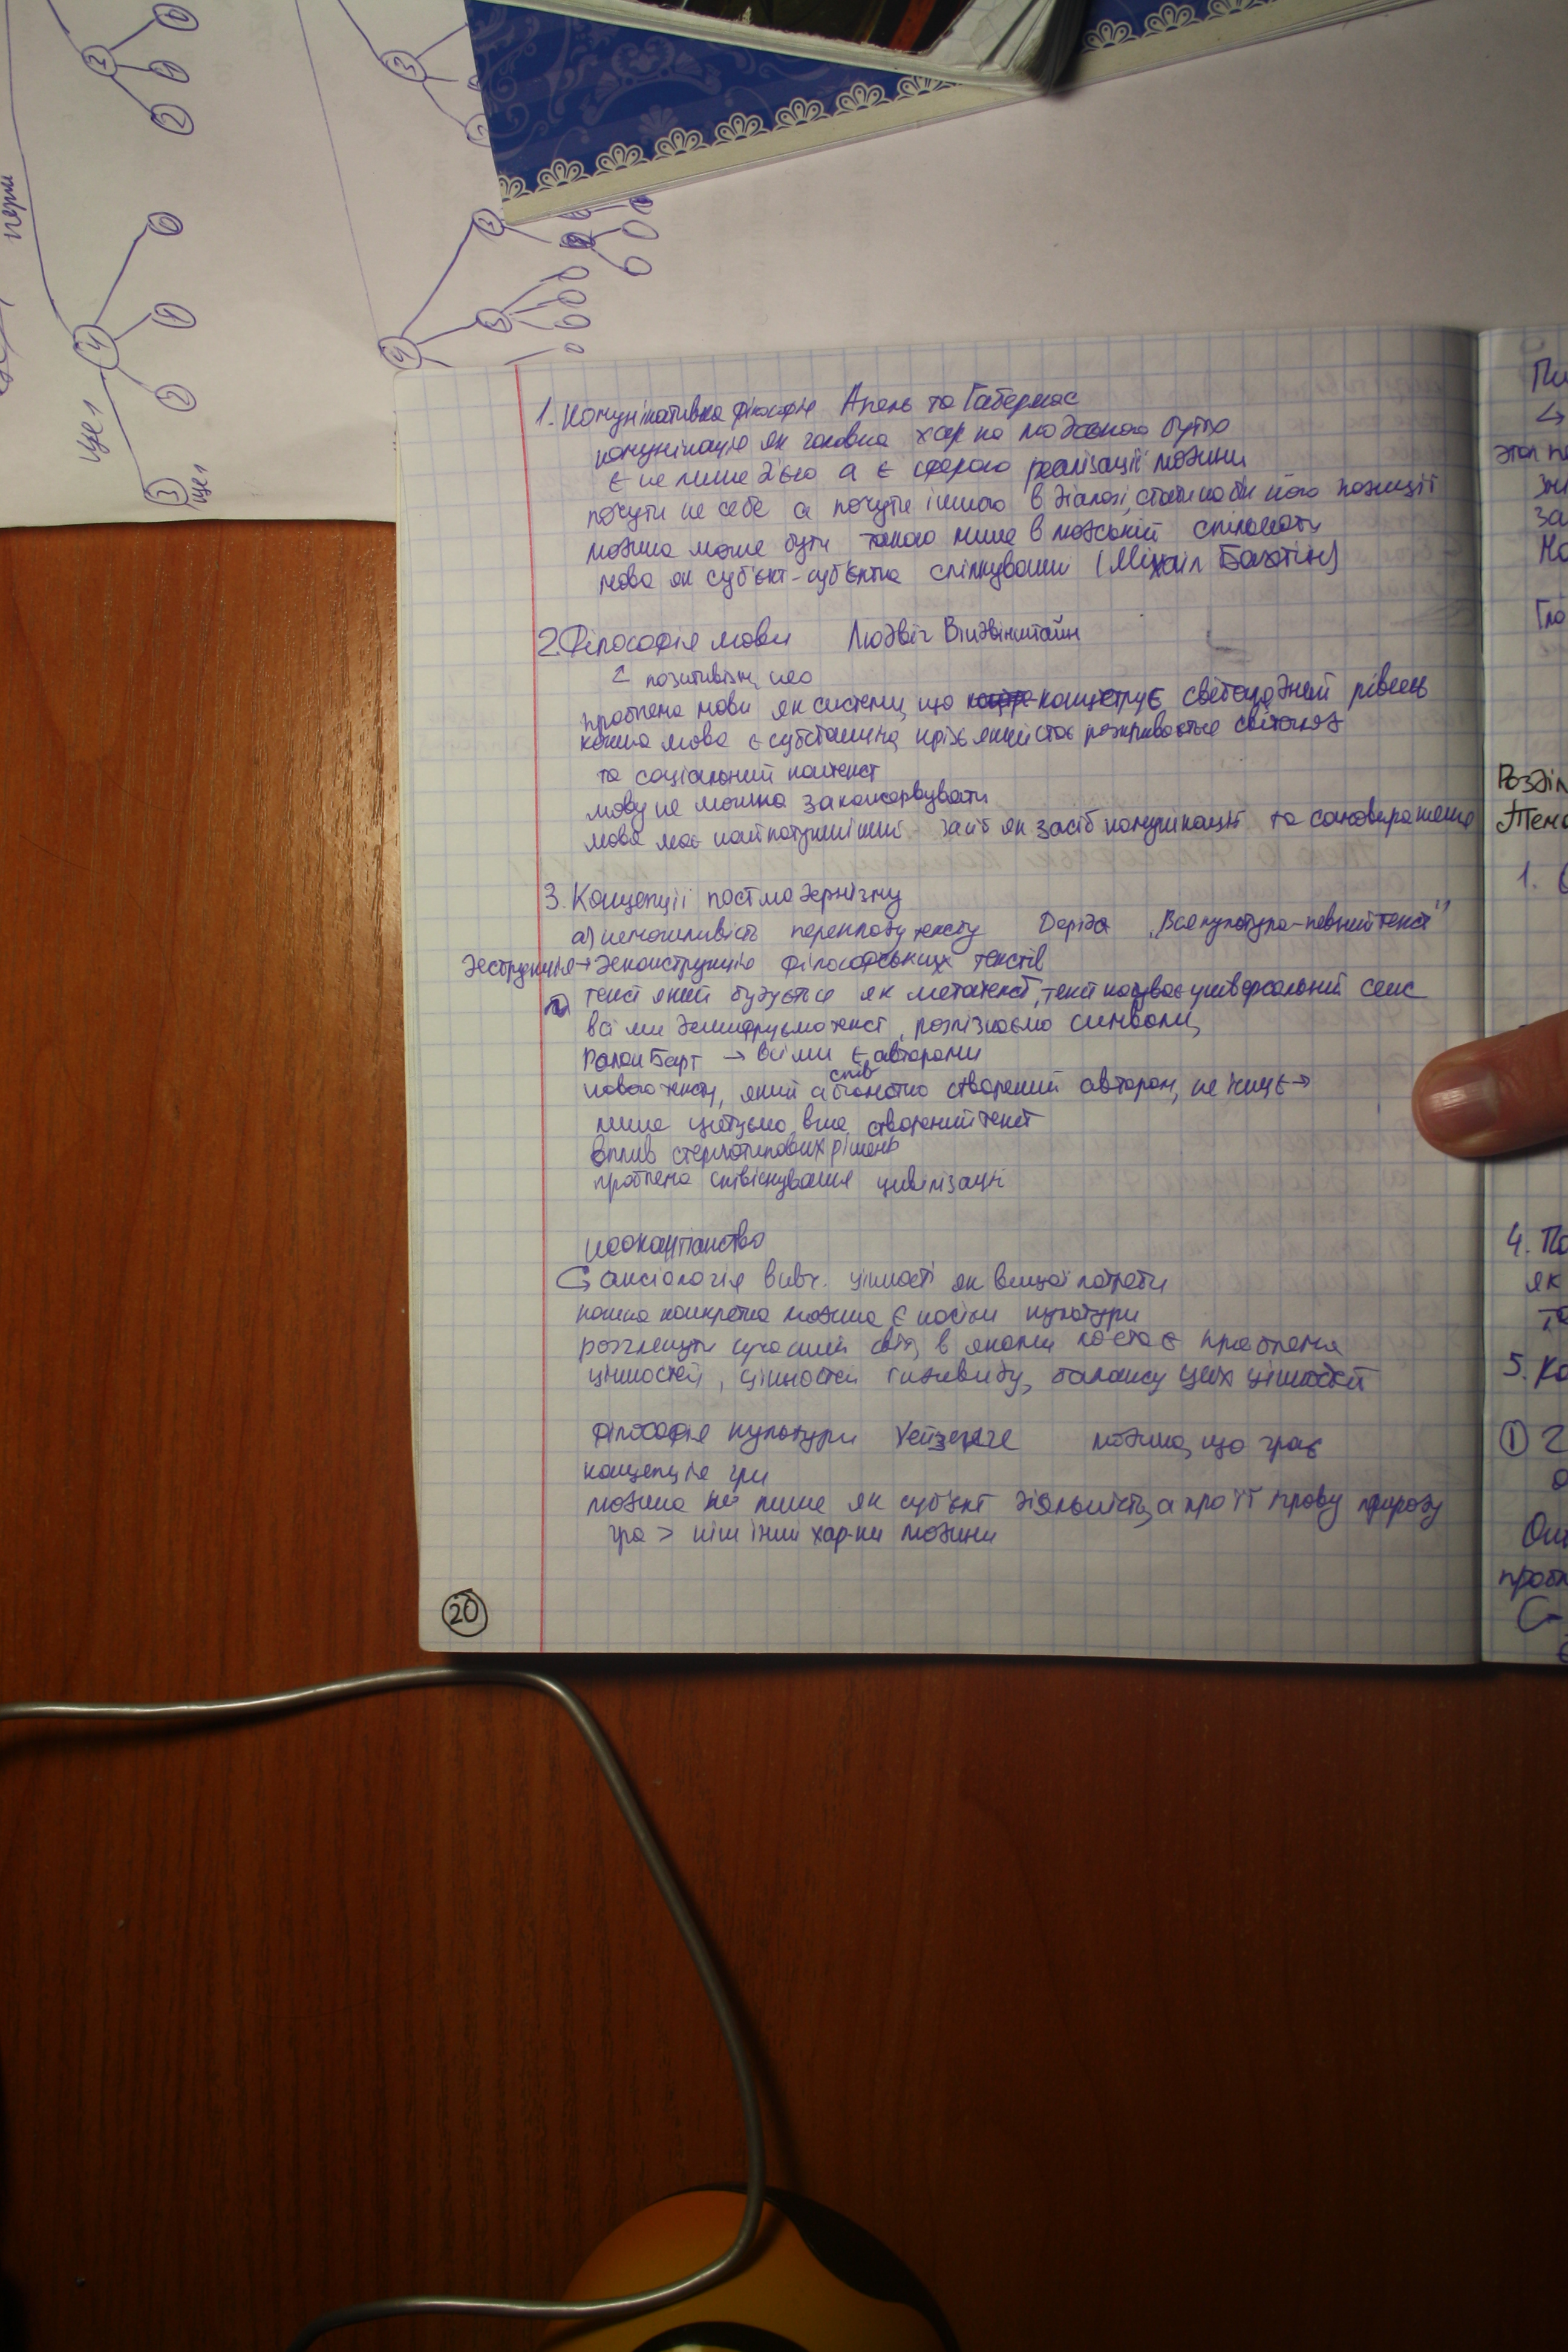 перш
ще 1
ще 1
1. Комунікативна філософія Апель та Габермас
комунікація як головна хар ка людського буття
є не лише дією а є сферою реалізації людини
почути не себе а почути іншого в діалозі, стати на бік його позиції
людина може бути такою лише в людській спільноті
мова як суб'єкт-суб'єктне спілкування (Міхаіл Бахтін)
2. Філософія мови Людвіг Вітдвінштайн
позитивізм, нео
проблема мови як системи, що конструює світоглядний рівень
кожна мова є субстанцією, крізь який стає розкривається світогляд
та соціальний контекст
мову не можна законсервувати
мова має найпотужніший засіб як засіб комунікації та самовираження
3. Концепції постмодернізму
а) неможливість перекладу тексту Деріда „Вся культура - певний текст"
деструкція → деконструкція філософських текстів
текст який будується як метатекст, текст набуває універсальний сенс
всі ми дешифруємо текст, розпізнаємо символи,
Ролан Барт → всі ми є авторами
спів
нового тексту, який абсолютно створений автором, не існує →
лише цитуємо вже створений текст
вплив стереотипових рішень
проблема співіснування цивілізацій
неокантіанство
аксіологія вивч. цінності як вищої потреби
кожна конкретна людина є носієм культури
розглянути сучасний світ, в якому постає проблема
цінностей, цінностей індивіду, балансу цих цінностей
філософія культури Хейзенге людина, що грає
концепція гри
людина не лише як суб'єкт діяльність, а про її ігрову природу
гра > ніж інші хар-ки людини
20
Розділ
1.
4. По
як
та
5. Ко
①